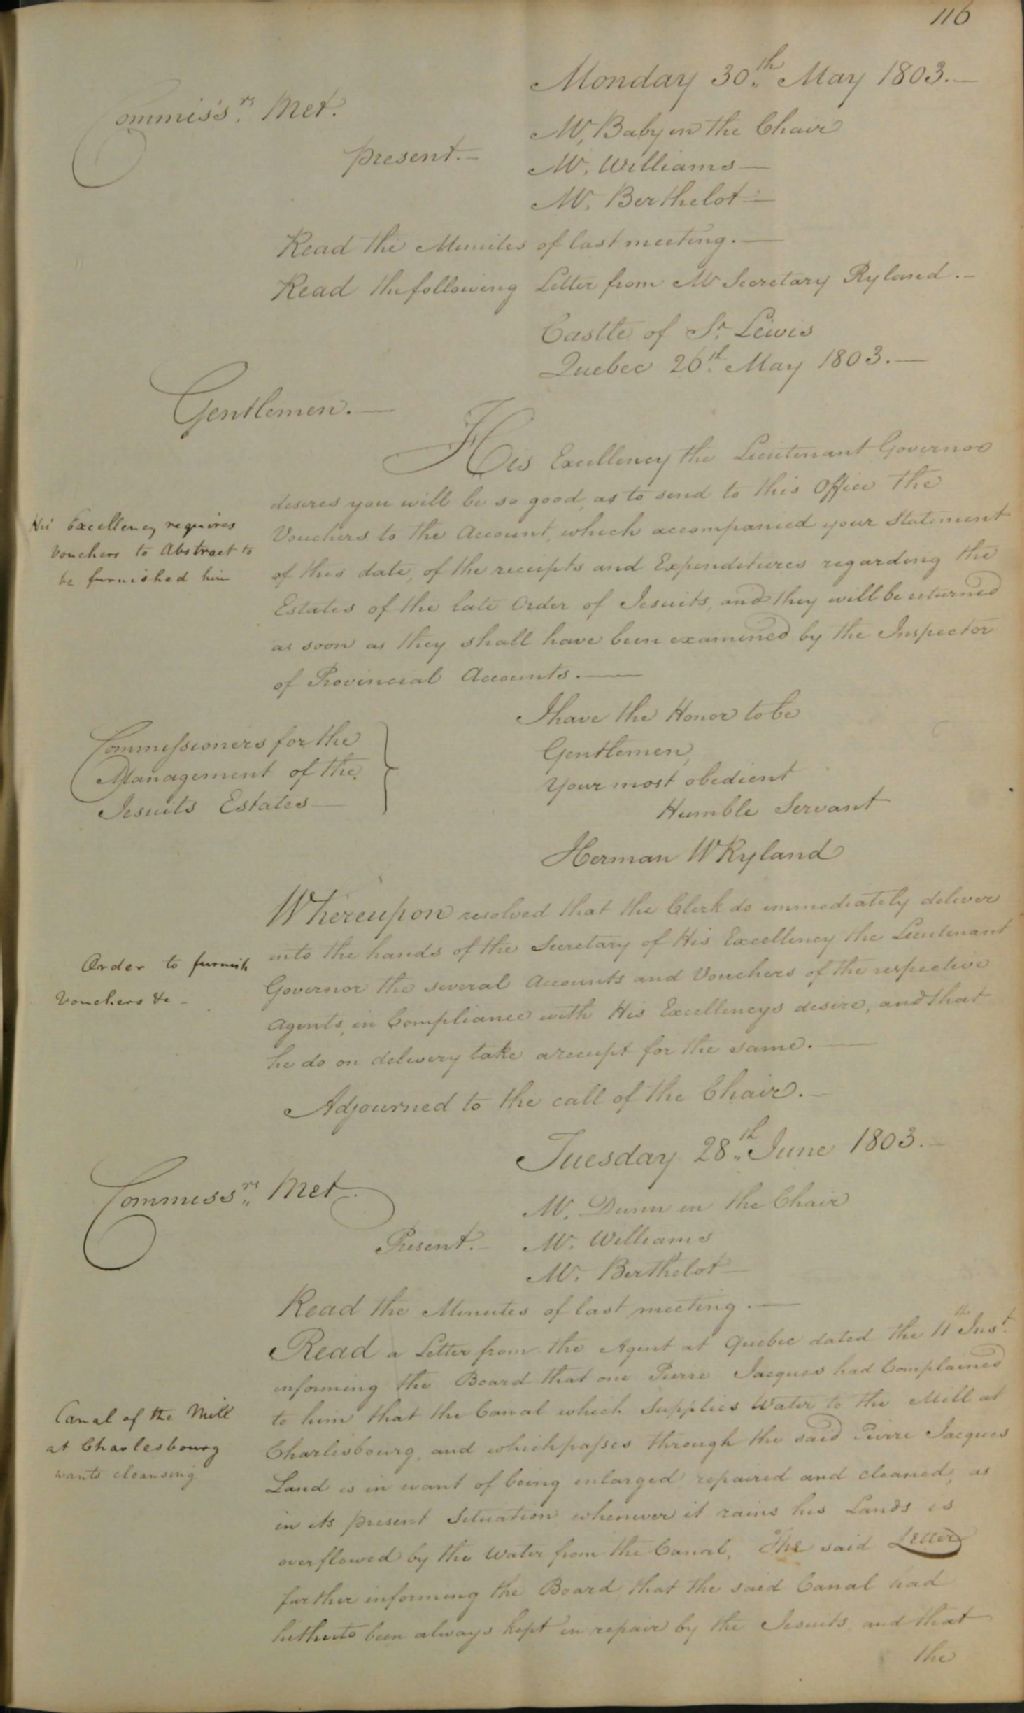 116
Monday 30th May 1803.—
Commiss'rs Met.
Mr. Baby in the Chair
present.—
Mr. Williams—
Mr. Berthelot—
Read the Minutes of last meeting.—
Read the following Letter from Mr Secretary Ryland.—
Castle of St. Lewis
Quebec 26th May 1803.—
Gentlemen.—
His Excellency the Lieutenant Governor
desires you will be so good, as to send to this Office the
His Excellency requires
Vouchers to Abstract to
be furnished him
Vouchers to the Account, which accompanied your Statement
of this date, of the receipts and Expenditures regarding the
Estates of the late Order of Jesuits, and they will be returned
as soon as they shall have been examined by the Inspector
of Provincial Accounts.—
I have the Honor to be
Gentlemen,
Your most obedient
Humble Servant
Herman W Ryland
Commissioners for the
Management of the
Jesuits Estates—
Whereupon resolved that the Clerk do immediately deliver
into the hands of the Secretary of His Excellency the Lieutenant
Order to furnish
Vouchers &c—
Governor the several Accounts and Vouchers of the respective
Agents, in Compliance with His Excellencys desire, and that
he do on delivery take a receipt for the same.—
Adjourned to the call of the Chair.—
Tuesday 28th June 1803.—
Commiss'rs Met.
Mr. Dunn in the Chair
Present.—
Mr. Williams
Mr. Berthelot—
Read the Minutes of last meeting.—
Read a Letter from the Agent at Quebec dated the 11th Inst.
informing the Board that one Pierre Jacques had Complained
to him that the Canal which Supplies Water to the Mill at
Canal of the Mill
at Charlesbourg
wants cleansing
Charlesbourg, and which passes through the said Pierre Jacques
Land is in want of being enlarged repaired and cleaned, as
in its present Situation whenever it rains his Lands is
overflowed by the Water from the Canal, The said Letter
further informing the Board, that the said Canal had
hitherto been always kept in repair by the Jesuits, and that
the